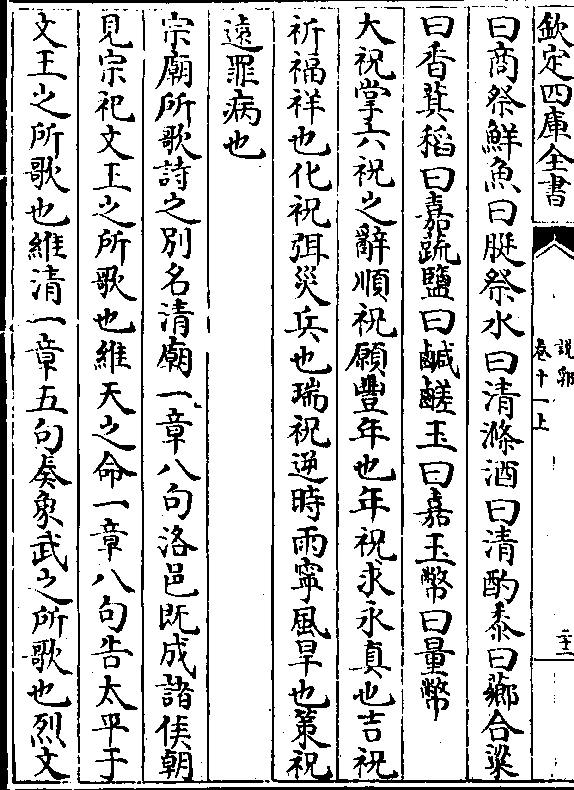 欽定四庫全書
說郛
卷十一上
二十二
曰商祭鮮魚曰脡祭水曰清滌酒曰清酌黍曰薌合粱
曰香萁稻曰嘉蔬鹽曰鹹鹺玉曰嘉玉幣曰量幣
大祝掌六祝之辭順祝願豐年也年祝求永真也吉祝
祈福祥也化祝弭災兵也瑞祝逆時雨寜風旱也筞祝
遠罪病也
宗廟所歌詩之别名清廟一章八句洛邑既成諸侯朝
見宗祀文王之所歌也維天之命一章八句告太平于
文王之所歌也維清一章五句奏象武之所歌也烈文